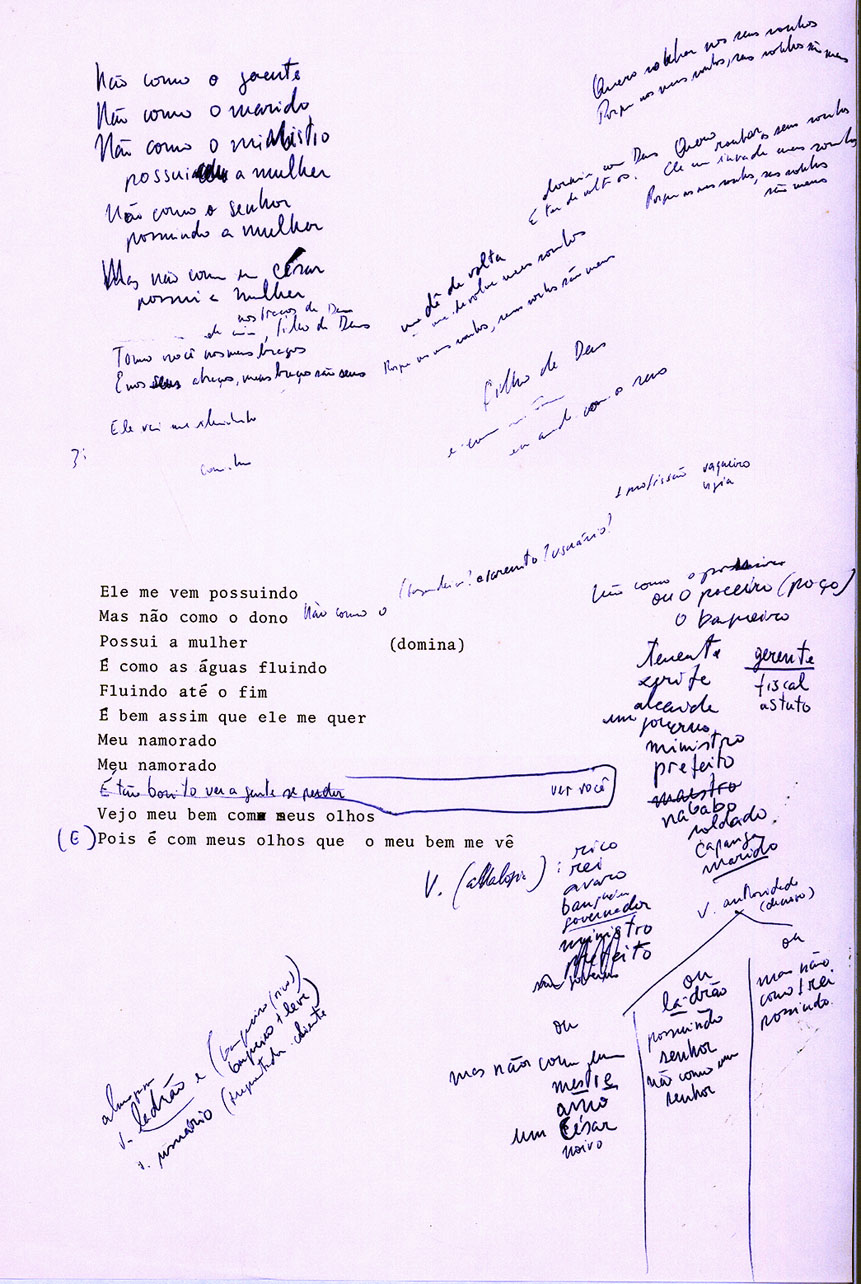 Não como o gerente
Não como o marido
Não como o ministro
possuindo a mulher
Não como o senhor
possuindo a mulher
Mas não como um césar
possui a mulher
nos braços de Deus
de mim, filho de Deus
Tomo você nos meus braços
E nos seus abraços, meus braços são seus
Ele vai me
Quero nos seus sonhos
Porque os meus sonhos, seus sonhos são meus
dormia com Deus Quero roubar os seus sonhos
E ter de volta os. Ele me invade meus sonhos
Porque os meus sonhos, seus sonhos
são meus
me dê de volta
me devolve meus sonhos
Porque os meus sonhos, seus sonhos são meus
filho de Deus
com o seus
1 profissão vaqueiro
vigia
Ele me vem possuindo
Mas não como o dono Não como o (fazendeiro? avarento? usuário?
Possui a mulher (domina)
É como as águas fluindo
Fluindo até o fim
É bem assim que ele me quer
Meu namorado
Meu namorado
É tão bonito ver a gente se perder ver você
Vejo meu bem com meus olhos
(E) Pois é com meus olhos que o meu bem me vê
Não como o posseiro
ou o poceiro (poço)
o banqueiro
tenente
xerife
alcaide
um governo
ministro
prefeito
maestro
nababo
soldado
capanga
marido
gerente
fiscal
astuto
V. :
rico
rei
avaro
banqueiro
governador
ministro
prefeito
ou
mas não como um
mestre
amo
um César
noivo
V. autoridade
ou
ladrão
possuindo
senhor
não como um
senhor
ou
mas não
como 1 rei
possuindo.
v. ladrão e (banqueiro (rico)
v. usuário (freguês cliente